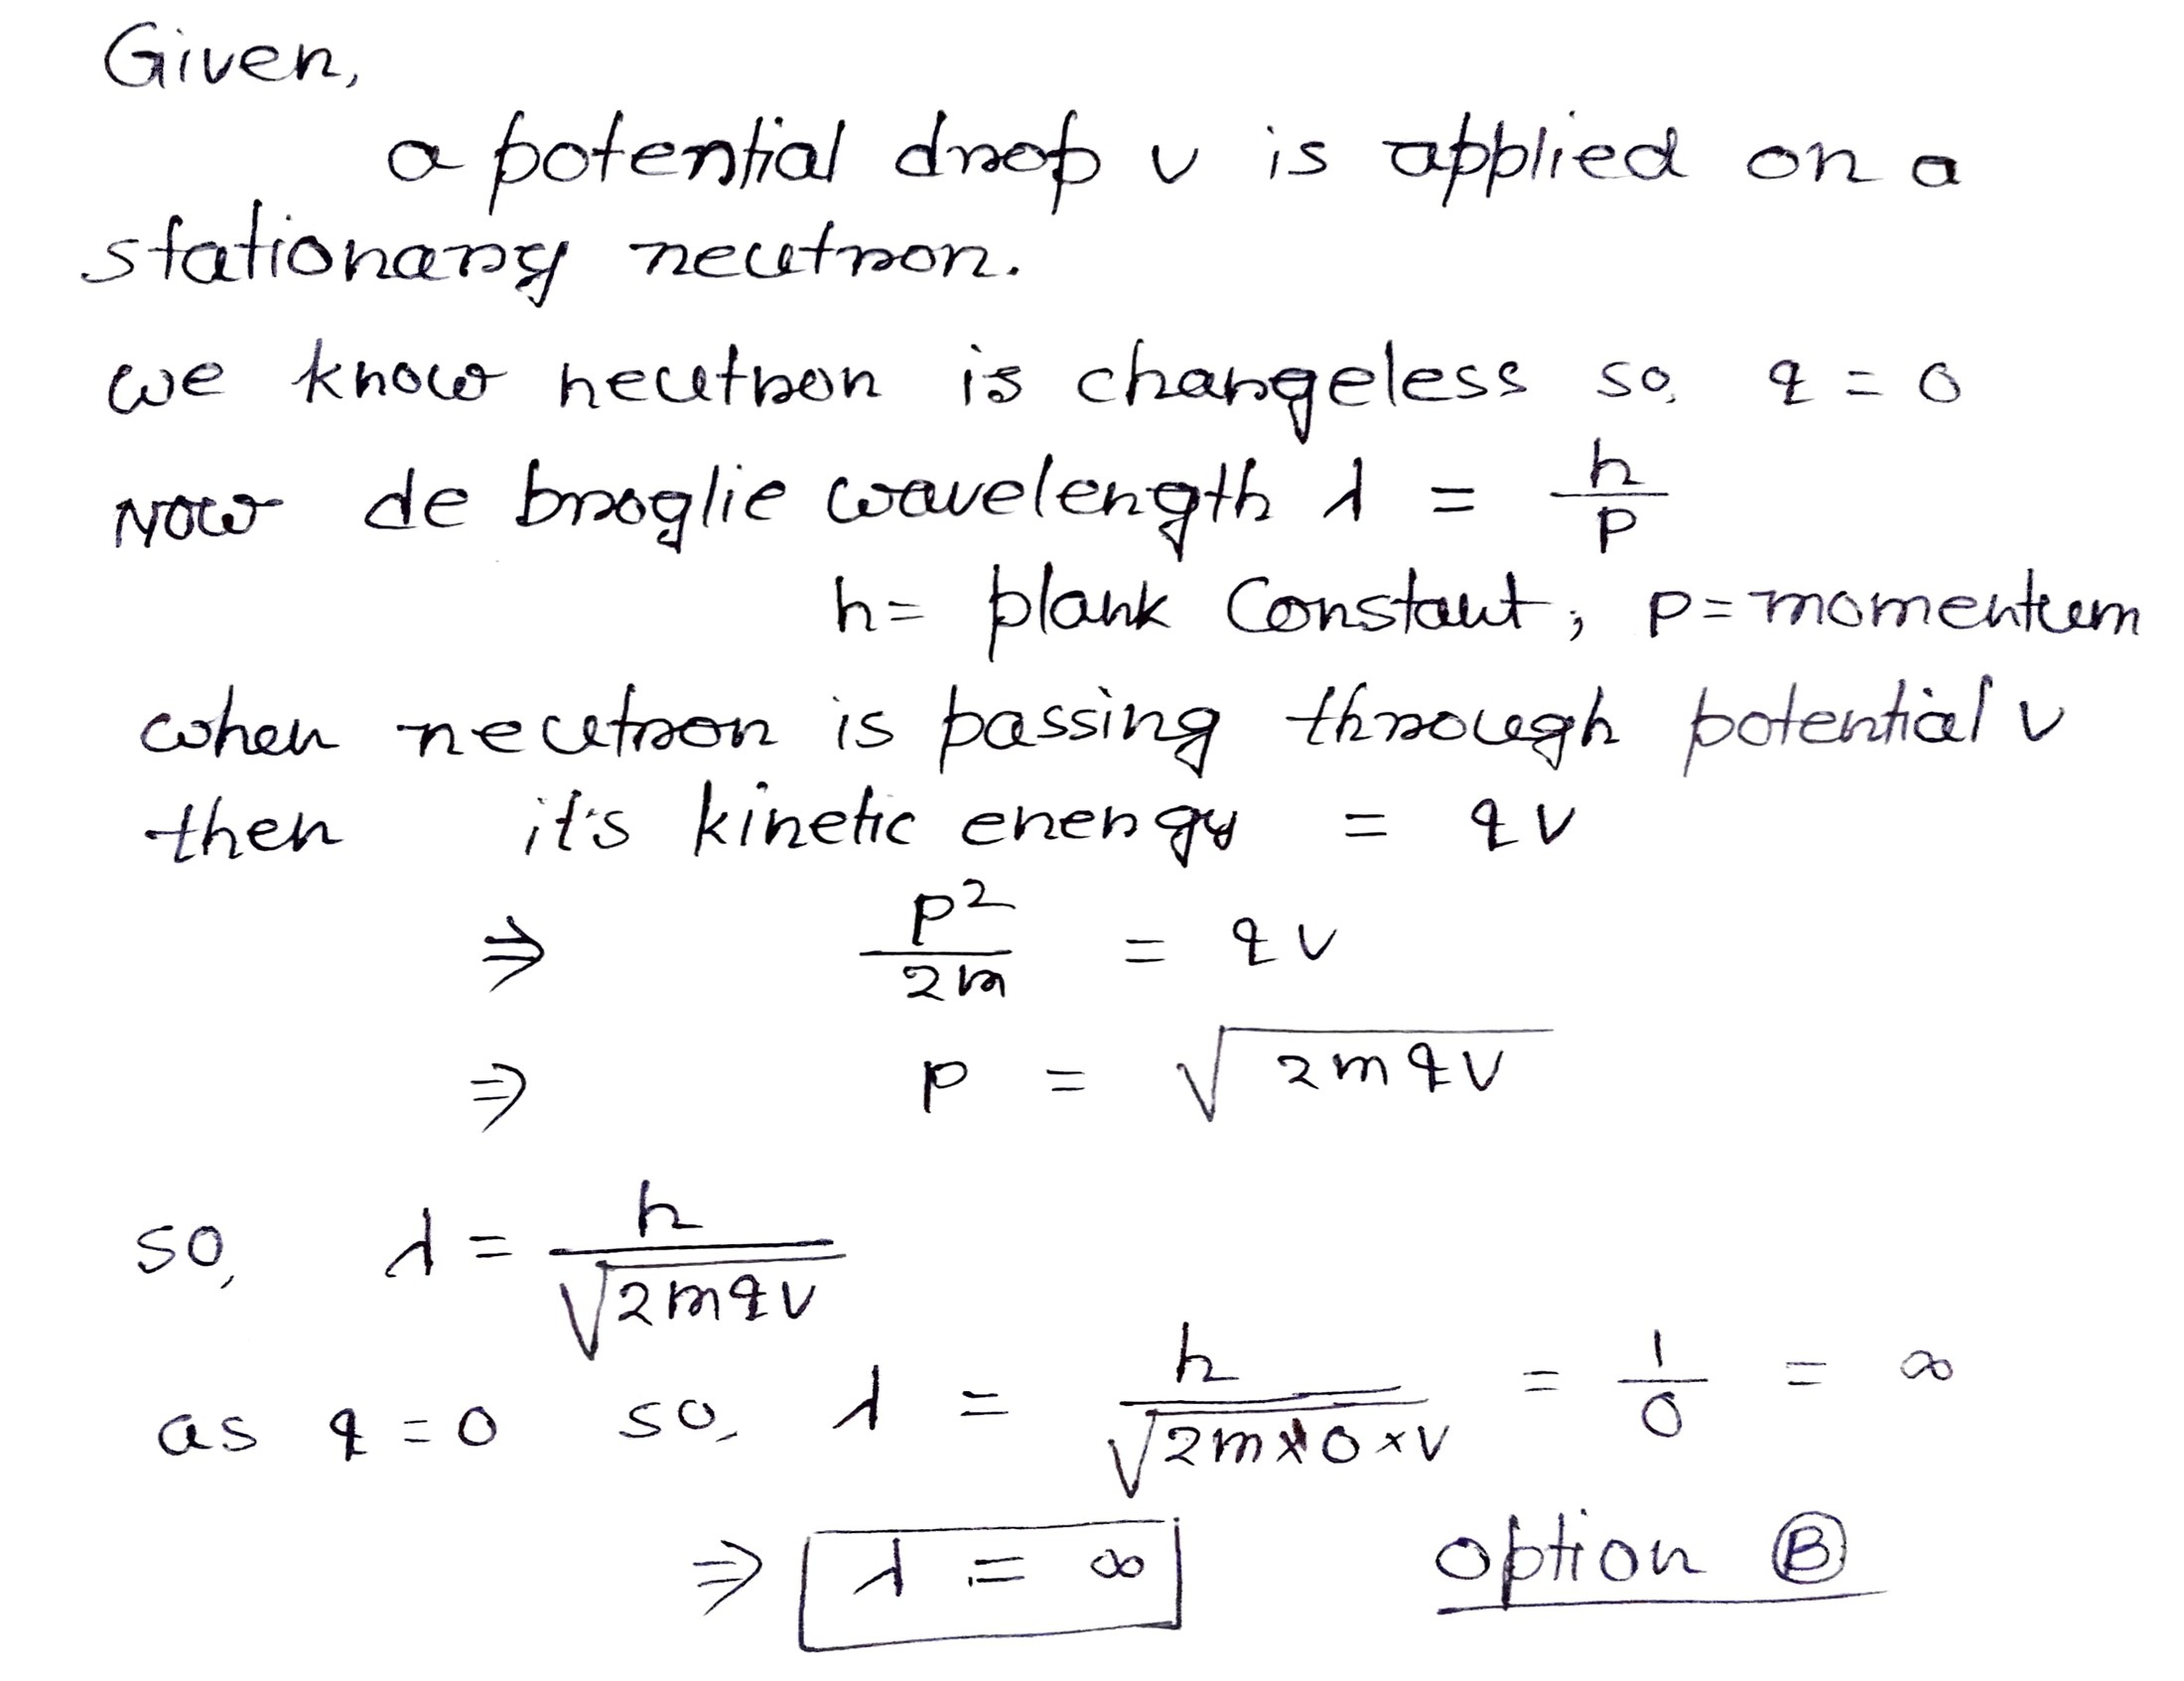 Given,
a potential drop v is applied on a
stationary neutron.
we know neutron is chargeless so, q = 0
Now de broglie wavelength λ = h/p
h = plank Constant, p = momentum
when neutron is passing through potential v
then it's kinetic energy = qv
⇒ p²/2m = qv
⇒ p = √2mqv
so, λ = h/√2mqv
as q = 0 so, λ = h/√2m×0×v = 1/0 = ∞
⇒ λ = ∞ option B